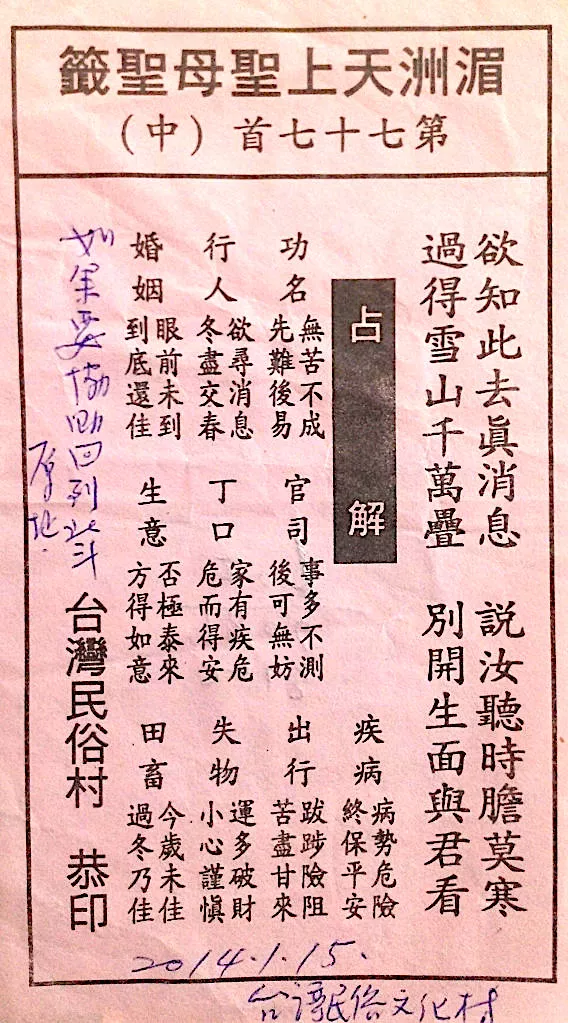 湄洲天上聖母聖籤
第七十七首（中）
欲知此去眞消息　說汝聽時膽莫寒
過得雪山千萬疊　別開生面與君看
占解
疾病　病勢危險　終保平安
功名　無苦不成　先難後易
官司　事多不測　後可無妨
出行　跋踄險阻　苦盡甘來
行人　欲尋消息　冬盡交春
丁口　家有疾危　危而得安
失物　運多破財　小心謹慎
婚姻　眼前未到　到底還佳
生意　否極泰來　方得如意
田畜　今歲未佳　過冬乃佳
台灣民俗村　恭印
如果要協助回列北斗
原地.
2014.1.15.
台灣民俗文化村